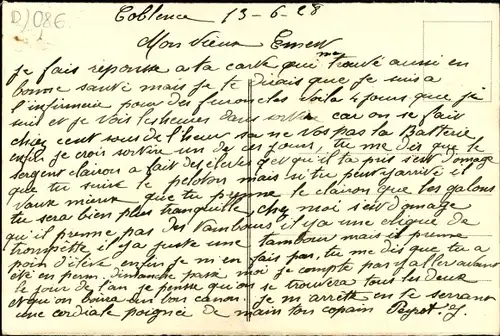 D/086
Coblence 13-6-28
Mon vieux Ernest
Je fais réponse a ta carte qui m'a trouvé aussi en
bonne santé mais je te dirais que je suis a
l'infirmerie pour des furoncles voila 4 jours que j'y
suis et je vois les heures dans sortir car on se fait
chier cent sous de l'heure sa ne vos pas la Batterie
enfin je crois sortir un de ces jours, tu me dis que le
sergent clairon a fait des élèves et qu'il ta pris s'est domage
que tu suive le peloton mais si tu peut arrivé il
vaux mieux que tu prenne le clairon que les galons
tu sera bien plus tranquille, chez moi s'est domage
qu'il prenne pas des tambours il y a une clique de
trompette il y a juste une tambour mais il prenne
point d'élève enfin je m'en fais pas, tu me dis que tu a
été en perm dimanche passé moi je compte pas y aller avant
le jour de l'an je pense qu'on se trouvera tous les deux
et qu'on boira un bon canon je m'arrette en te serrant
une cordiale poignée de main ton copain Peyrot